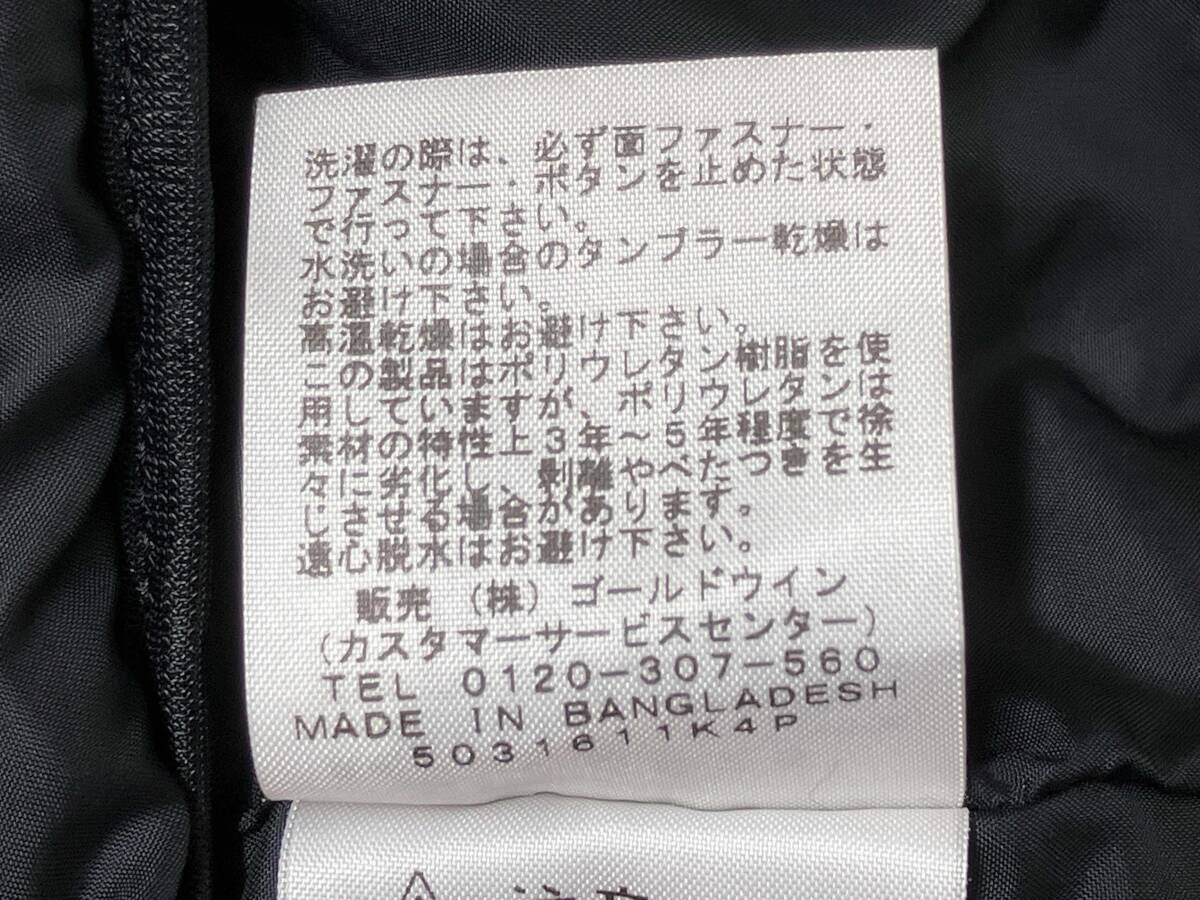 洗濯の際は、必ず面ファスナー・
ファスナー・ボタンを止めた状態
で行って下さい。
水洗いの場合のタンブラー乾燥は
お避け下さい。
高温乾燥はお避け下さい。
この製品はポリウレタン樹脂を使
用していますが、ポリウレタンは
素材の特性上3年～5年程度で徐
々に劣化し、剥離やべたつきを生
じさせる場合があります。
遠心脱水はお避け下さい。
販売 (株) ゴールドウイン
(カスタマーサービスセンター)
TEL 0120-307-560
MADE IN BANGLADESH
5031611K4P
注意